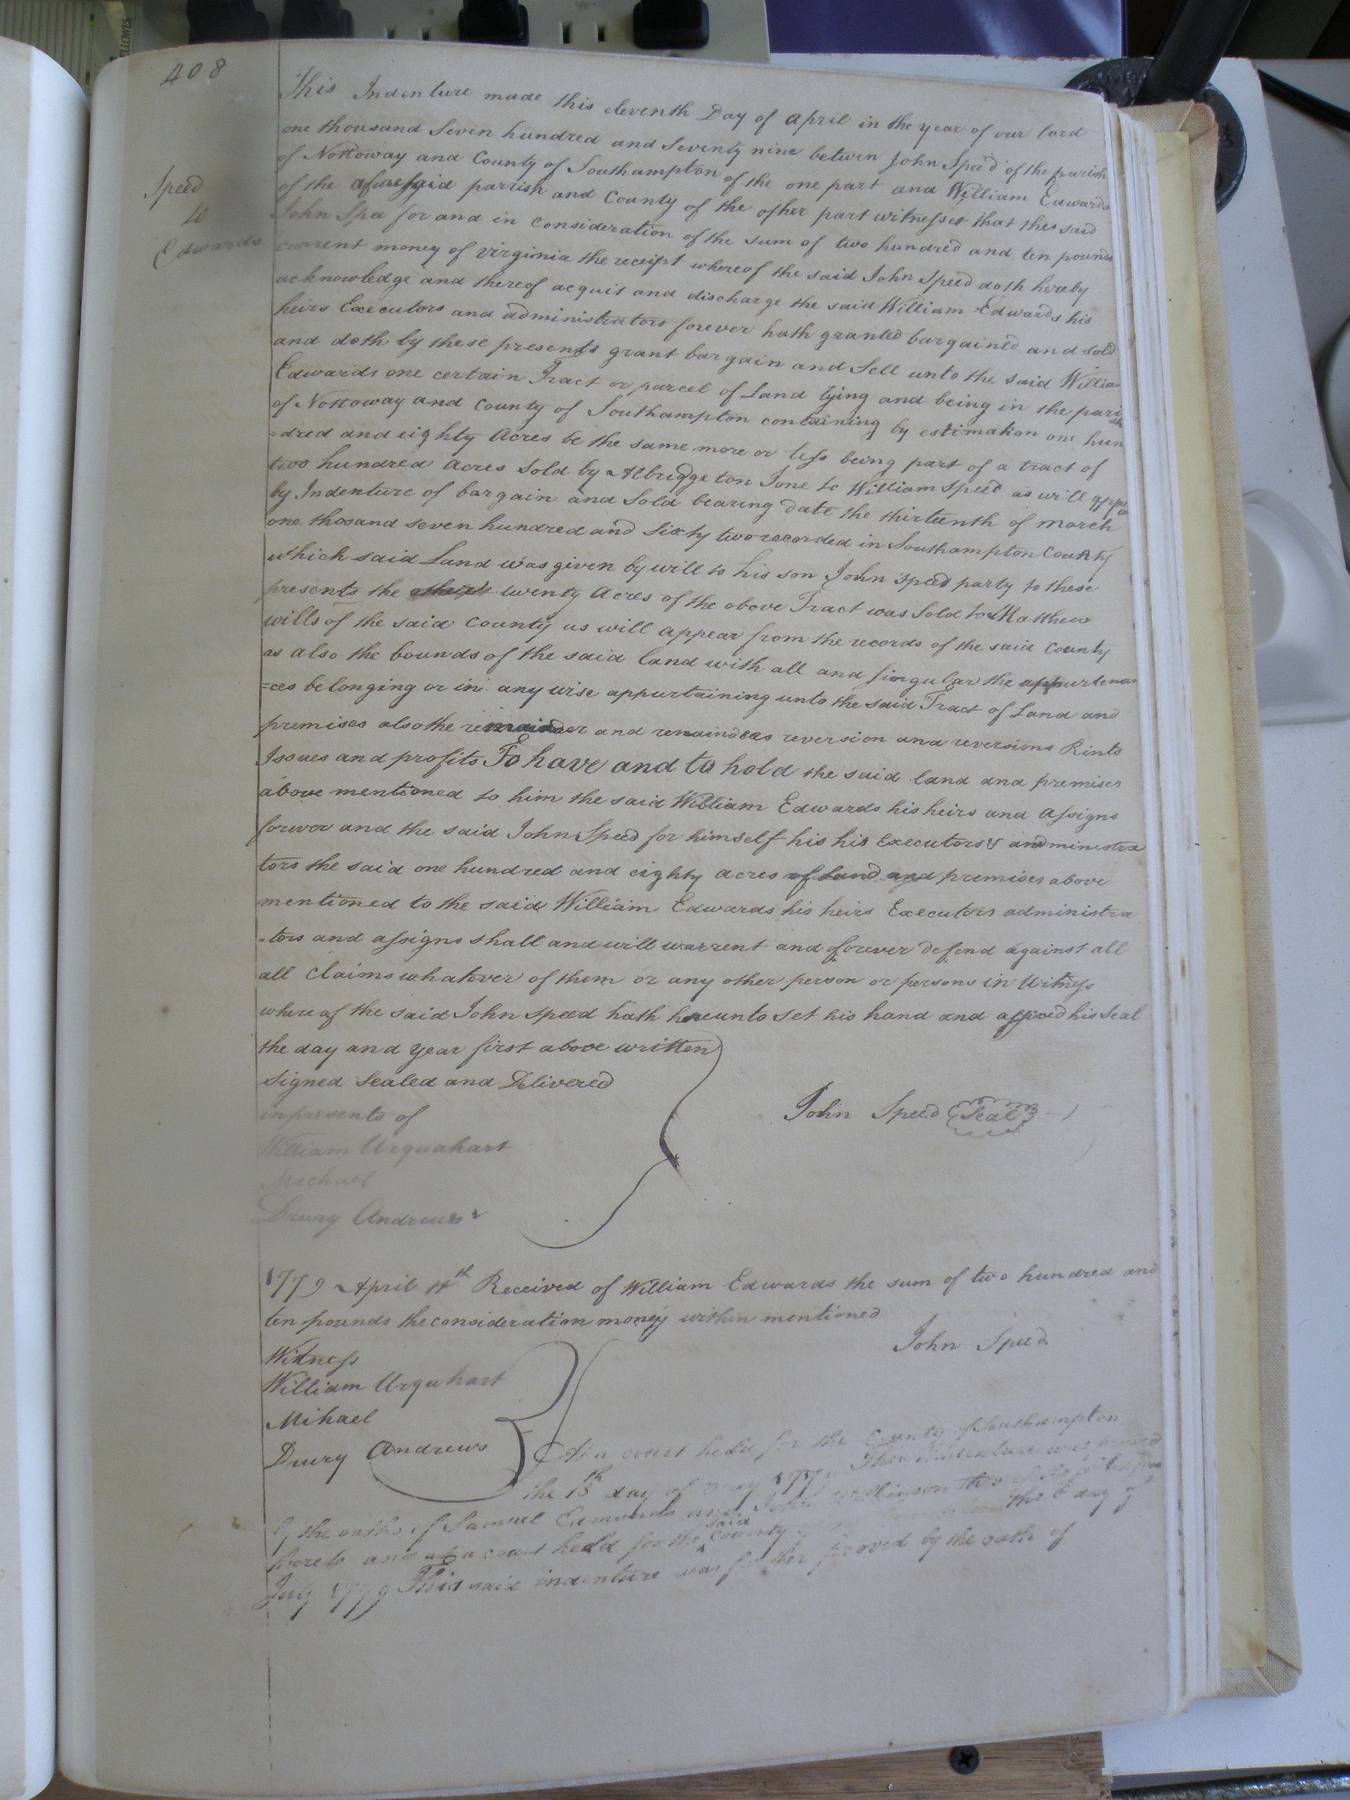 408
This Indenture made this eleventh Day of april in the year of our lord
one thousand Seven hundred and Seventy nine betwen John Speed of the parish
of Nottoway and County of Southampton of the one part and William Edwards
Speed
to
Edwards
of the aforesaid parrish and County of the other part witnesset that the said
John Spee for and in Consideration of the sum of two hundred and ten pounds
current money of virginia the receipt whereof the said John Speed doth hereby
acknowledge and thereof acquit and discharge the said William Edwards his
heirs Executors and administrators forever hath granted bargained and sold
and doth by these presents grant bargain and Sell unto the said William
Edwards one certain Tract or parcel of Land lying and being in the parish
of Nottoway and County of Southampton containing by estimation one hun
=dred and eighty Acres be the same more or less being part of a tract of
two hundred acres Sold by Albridgeton Jone to William Speed as will appear
by Indenture of bargain and Sold bearing date the thirteenth of march
one thosand seven hundred and Sixty two recorded in Southampton County
which said Land was given by will to his son John Speed party to these
presents the twenty Acres of the above Tract was Sold to Matthew
wills of the said County as will appear from the records of the said County
as also the bounds of the said land with all and singular the appurtenan
=ces belonging or in any wise appurtaining unto the said Tract of Land and
premises also the remainder and remainders reversion and reversions Rints
Issues and profits To have and to hold the said land and premises
above mentioned to him the said William Edwards his heirs and assigns
forever and the said John Speed for himself his his Executors & administra
tors the said one hundred and eighty acres of Land and premises above
mentioned to the said William Edwards his heirs Executors administra
-tors and assigns shall and will warrent and forever defend against all
all Claims whatever of them or any other person or persons in Witness
whereof the said John speed hath hereunto set his hand and affixed his Seal
the day and year first above written
signed Sealed and Delivered
in presents of
John Speed Seal
William Urquahart
Michael
Drury Andrews
1779 April 11th Received of William Edwards the sum of two hundred and
ten pounds the consideration money within mentioned
John Speed
Witness
William Urquhart
Mihael
Drury Andrews
At a court held for the County of Southampton
the 13th day of may 1779 This Indenture was proved
by the oaths of Samuel Edmunds and John Wilkinson two of the
thereto and at a court held for the said County the 8 day of
July 1779 This said indenture was further proved by the oath of